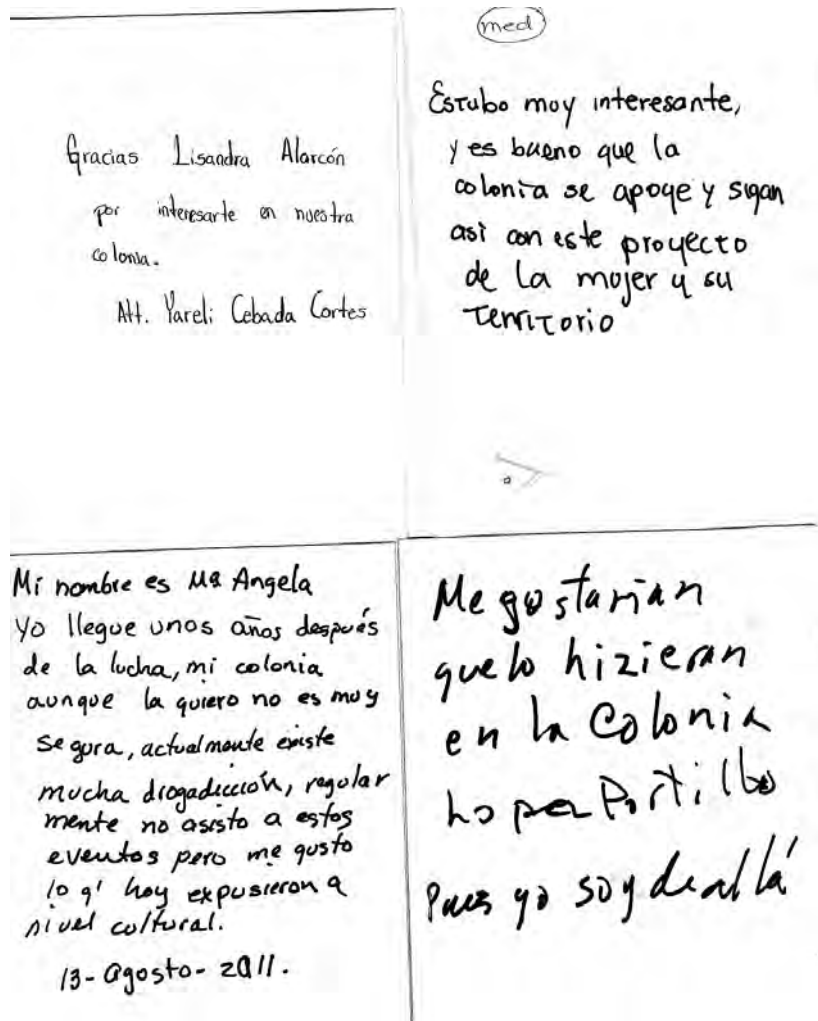 Gracias Lisandra Alarcón
por interesarte en nuestra
colonia.
Att. Yareli Cebada Cortes
med
Estubo muy interesante,
y es bueno que la
colonia se apoye y sigan
asi con este proyecto
de la mujer y su
territorio
Mi nombre es Ma Angela
Yo llegue unos años después
de la lucha, mi colonia
aunque la quiero no es muy
segura, actualmente existe
mucha drogadicción, regular
mente no asisto a estos
eventos pero me gusto
lo q' hoy expusieron a
nivel cultural.
13-agosto-2011.
Me gostarian
que lo hizieran
en la Colonia
Portillo
pues yo soy de allá